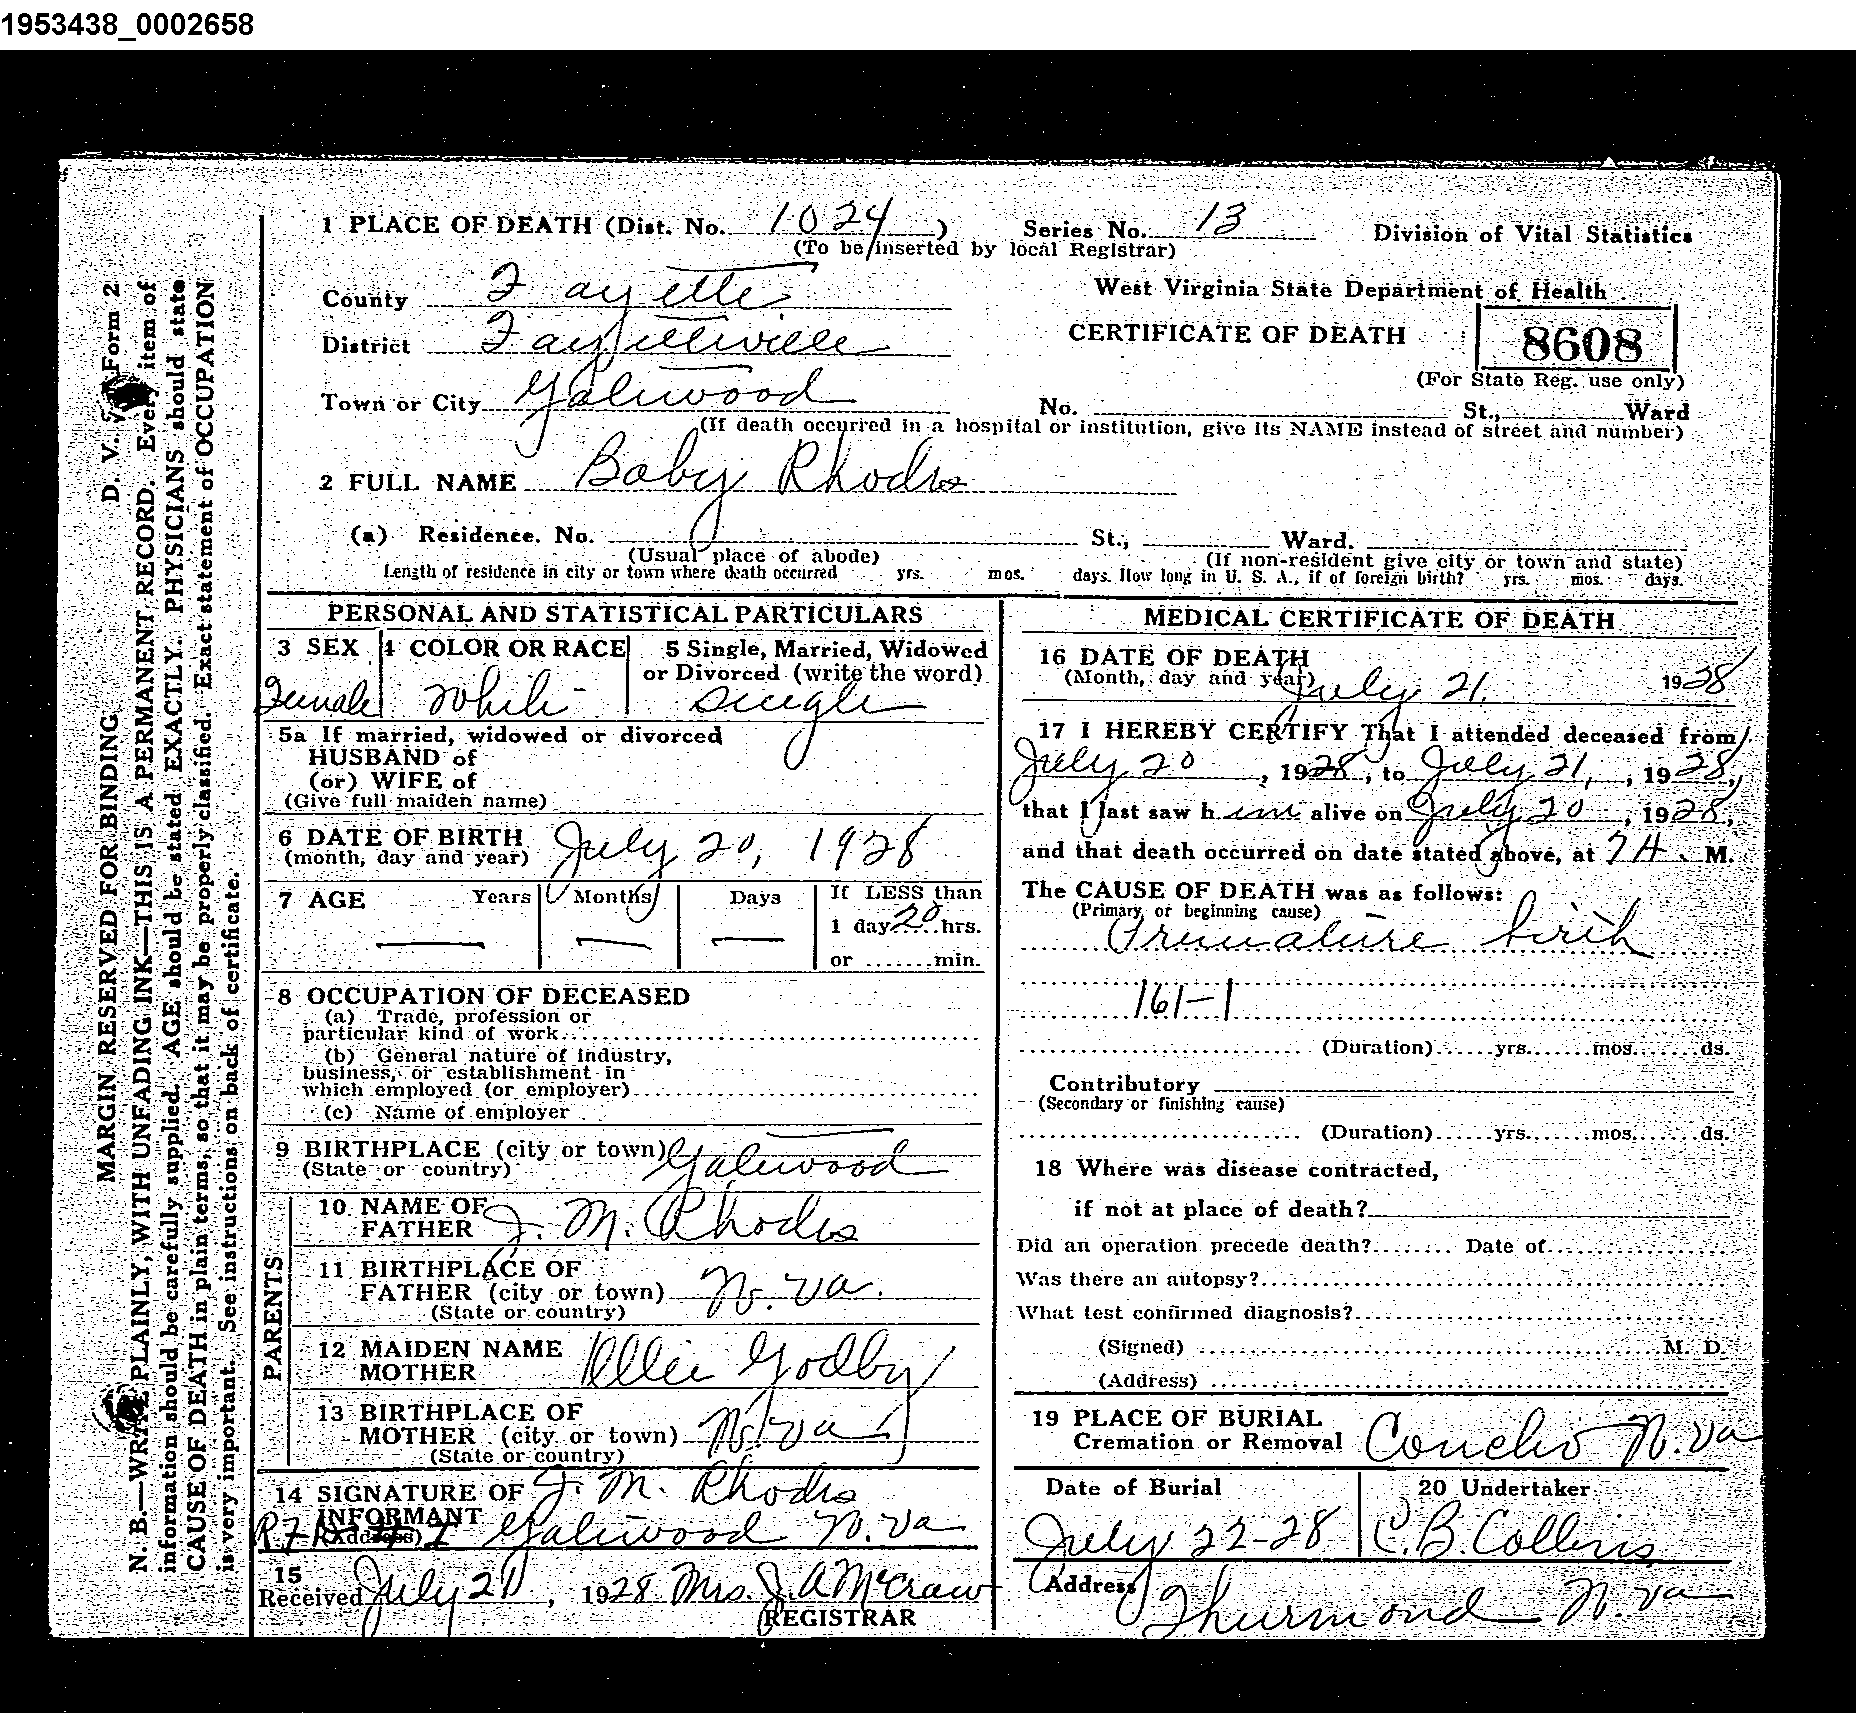 1953438_0002658
1 PLACE OF DEATH (Dist. No. 1024 ) Series No. 13 Division of Vital Statistics
(To be inserted by local Registrar)
County Fayette West Virginia State Department of Health
District Fayetteville CERTIFICATE OF DEATH 8608
(For State Reg. use only)
Town or City Gatewood No. St., Ward
(If death occurred in a hospital or institution, give its NAME instead of street and number)
2 FULL NAME Baby Rhodes
(a) Residence. No. St., Ward.
(Usual place of abode) (If non-resident give city or town and state)
Length of residence in city or town where death occurred yrs. mos. days. How long in U. S. A., if of foreign birth? yrs. mos. days.
PERSONAL AND STATISTICAL PARTICULARS
3 SEX 4 COLOR OR RACE 5 Single, Married, Widowed
or Divorced (write the word)
Female White single
5a If married, widowed or divorced
HUSBAND of
(or) WIFE of
(Give full maiden name)
6 DATE OF BIRTH July 20, 1928
(month, day and year)
7 AGE Years Months Days If LESS than
1 day 20 hrs.
or ....... min.
8 OCCUPATION OF DECEASED
(a) Trade, profession or
particular kind of work
(b) General nature of industry,
business, or establishment in
which employed (or employer)
(c) Name of employer
9 BIRTHPLACE (city or town) Gatewood
(State or country)
PARENTS
10 NAME OF
FATHER J. M. Rhodes
11 BIRTHPLACE OF
FATHER (city or town) W. Va.
(State or country)
12 MAIDEN NAME
MOTHER Ollie Godby
13 BIRTHPLACE OF
MOTHER (city or town) W. Va
(State or country)
14 SIGNATURE OF J. M. Rhodes
INFORMANT
(Address) Gatewood W. Va
15
Received July 21, 1928 Mrs. J. A McCraw
REGISTRAR
MEDICAL CERTIFICATE OF DEATH
16 DATE OF DEATH
(Month, day and year) July 21, 1928
17 I HEREBY CERTIFY That I attended deceased from
July 20, 1928, to July 21, 1928,
that I last saw h im alive on July 20, 1928,
and that death occurred on date stated above, at 7 A. M.
The CAUSE OF DEATH was as follows:
(Primary or beginning cause)
Premature birth
161-1
(Duration) yrs. mos. ds.
Contributory
(Secondary or finishing cause)
(Duration) yrs. mos. ds.
18 Where was disease contracted,
if not at place of death?
Did an operation precede death? Date of
Was there an autopsy?
What test confirmed diagnosis?
(Signed) M. D.
(Address)
19 PLACE OF BURIAL
Cremation or Removal Concho W. Va
Date of Burial 20 Undertaker
July 22-28 C. B. Collins
Address
Thurmond W. Va
MARGIN RESERVED FOR BINDING D. V. Form 2
N. B.—WRITE PLAINLY, WITH UNFADING INK—THIS IS A PERMANENT RECORD. Every item of
information should be carefully supplied. AGE should be stated EXACTLY. PHYSICIANS should state
CAUSE OF DEATH in plain terms, so that it may be properly classified. Exact statement of OCCUPATION
is very important. See instructions on back of certificate.